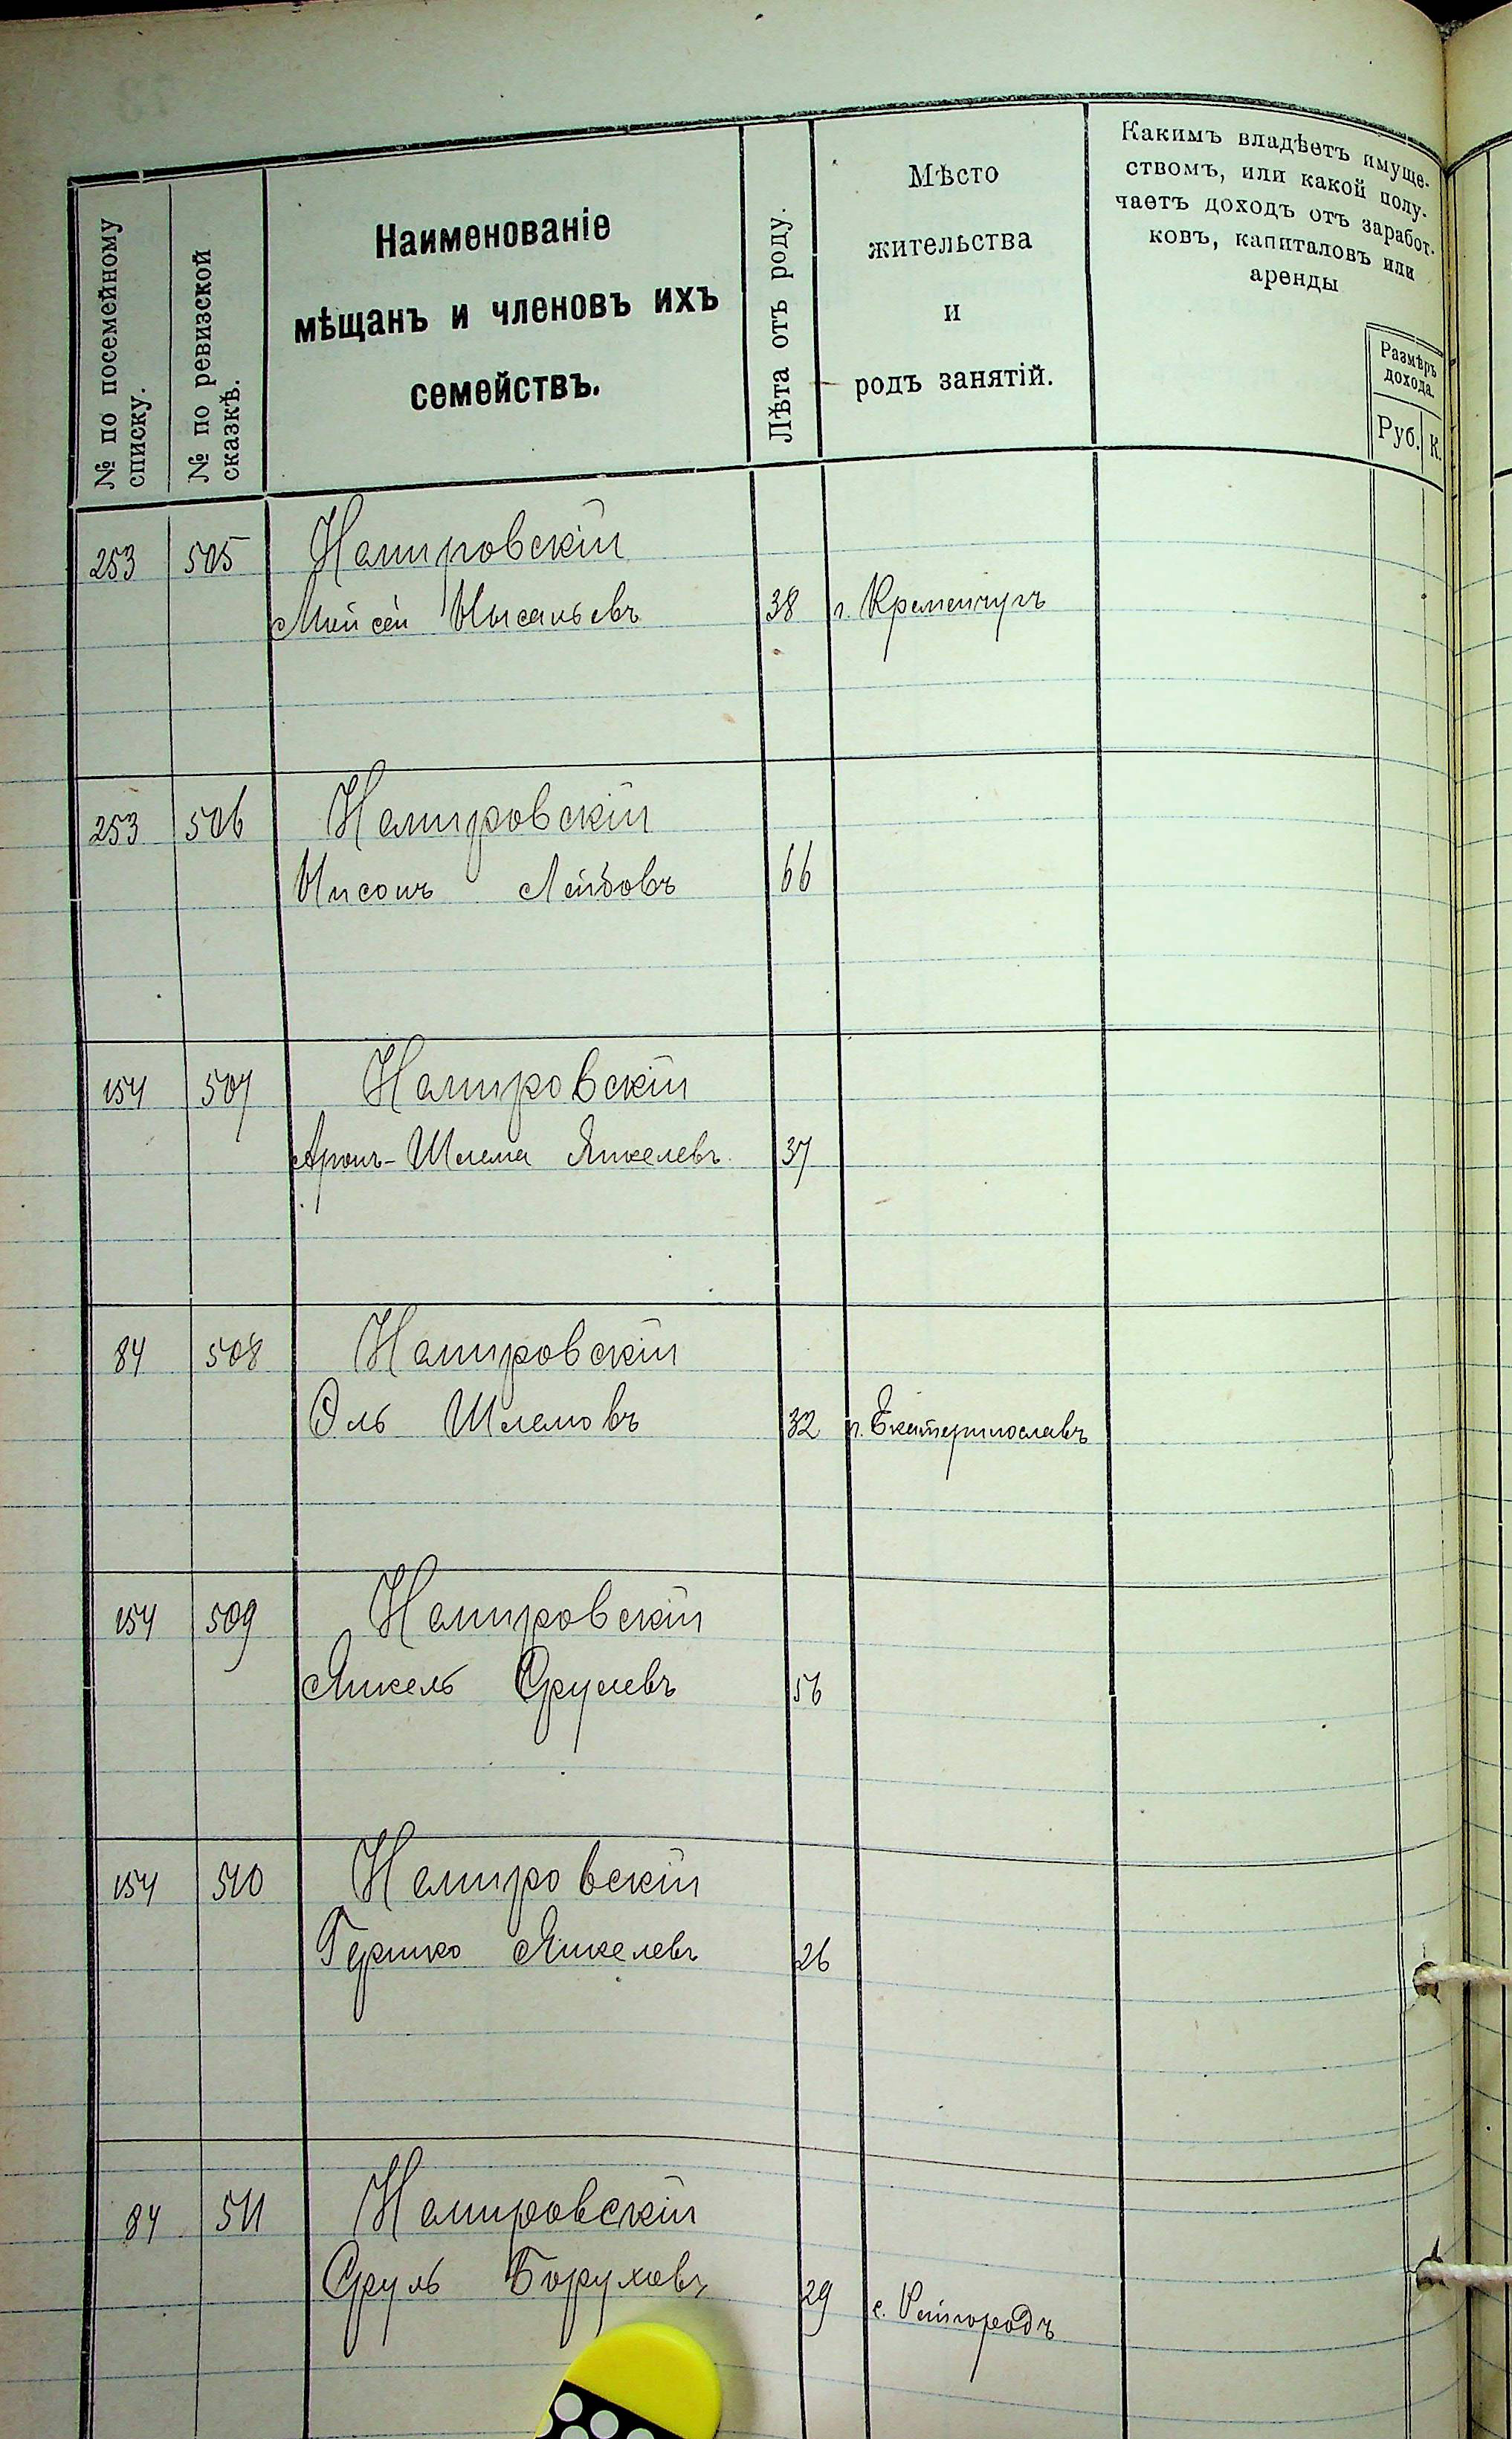 № по посемейному списку.
№ по ревизской сказкѣ.
Наименованіе
мѣщанъ и членовъ ихъ
семействъ.
Лѣта отъ роду.
Мѣсто
жительства
и
родъ занятій.
Какимъ владѣетъ имуще-
ствомъ, или какой полу-
чаетъ доходъ отъ заработ-
ковъ, капиталовъ или
аренды
Размѣръ
дохода.
Руб. К.
253 505 Немировскій
Мойсей 38 г. Кременчугъ
253 506 Немировскій
Нисонъ Лейбовъ 66
154 507 Немировскій
Аронъ-Шлема Янкелевъ 37
84 508 Немировскій
Эль Шлемовъ 32 г. Екатеринославъ
154 509 Немировскій
Янкель Срулевъ 56
154 510 Немировскій
Гершко Янкелевъ 26
84 511 Немировскій
Сруль Боруховъ 29 с.